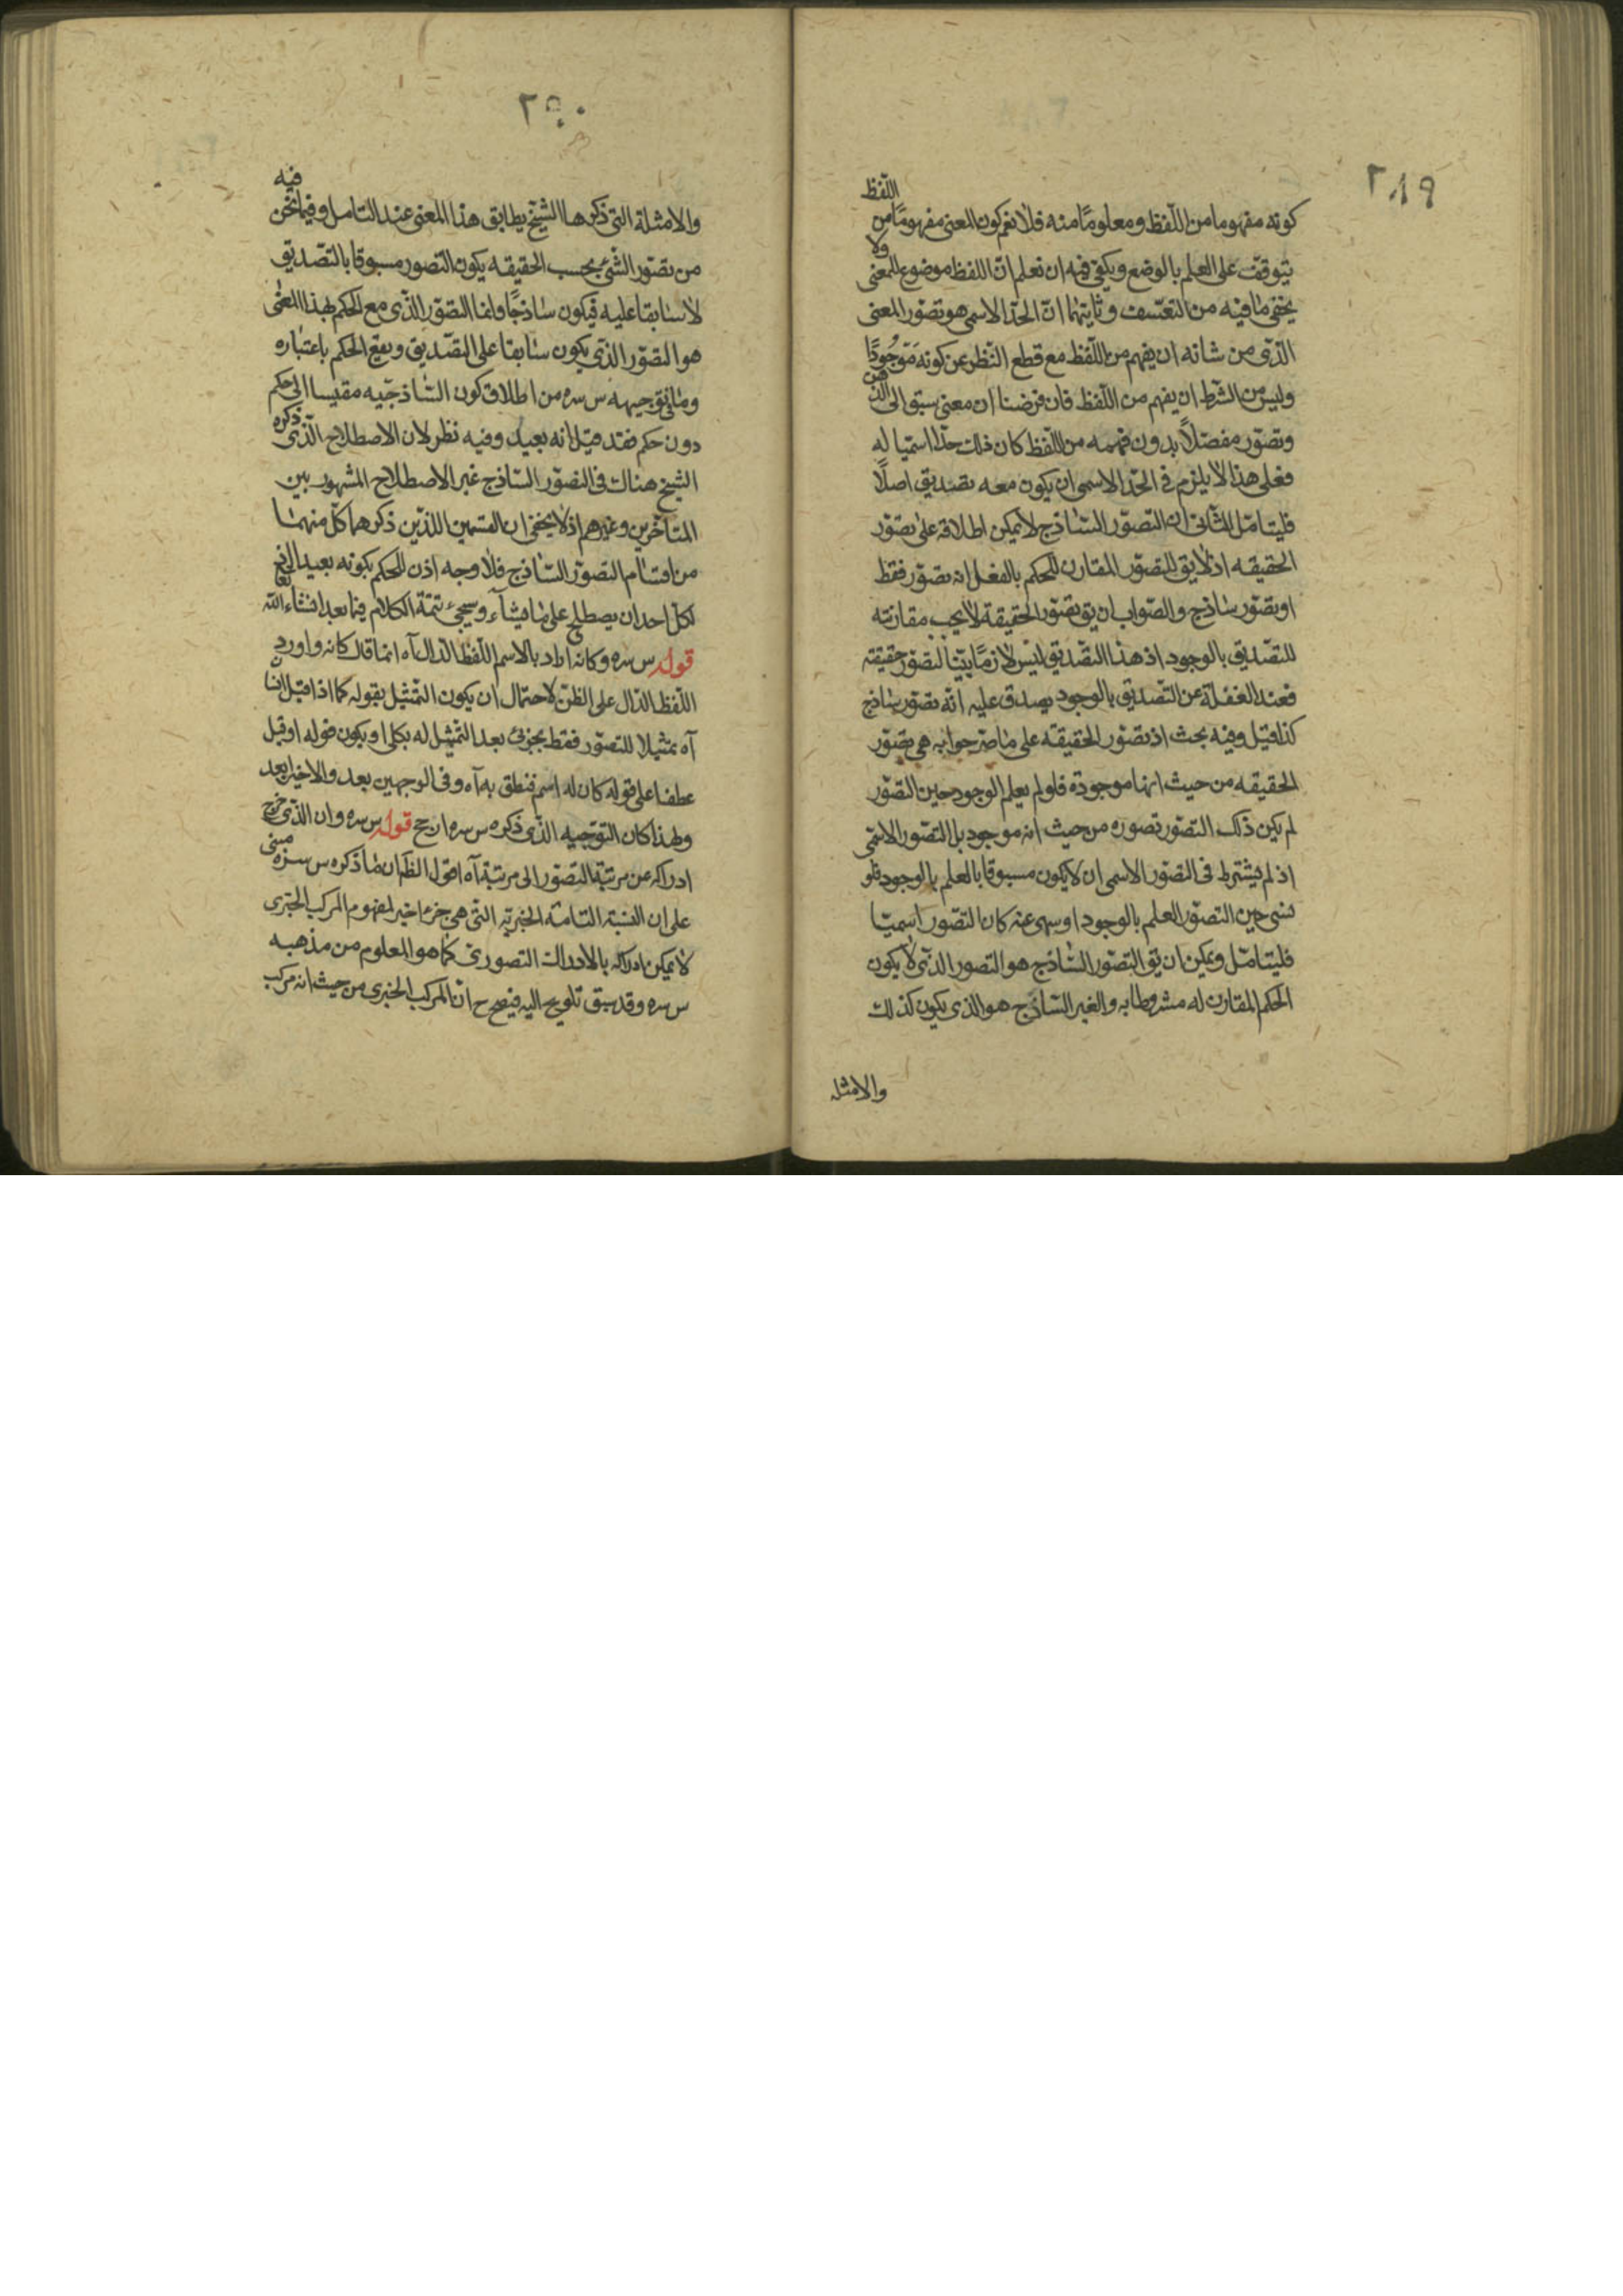 ٢٨٩
كونه مفهوما من اللّفظ ومعلومًا منه فلانغم كون المعنى مفهومًا من اللّفظ
يتوقّف على العلم بالوضع ويكفى فيه ان نعلم انّ اللفظ موضوع للمعنى ولا
يخفى ما فيه من التعسّف وثانيتهما انّ الحدّ الاسمى هو تصوّر المعنى
الّذى من شانه ان يفهم من اللّفظ مع قطع النّظر عن كونه مَوْجُودًا
وليس من الشّرط ان يفهم من اللّفظ فان فرضنا ان معنى سبق الى الذهن
وتصوّر مفصّلاً بدون فهمه من اللّفظ كان ذلك حدّا اسميّا له
فعلى هذا لا يلزم فى الحدّ الاسمى ان يكون معه تصديق اصلًا
فليتامّل الثّانى ان التصوّر السّاذج لا يمكن اطلاقه على تصوّر
الحقيقه اذ لا يق للتصوّر المقارن للحكم بالفعل انه تصوّر فقط
او تصوّر ساذج والصّواب ان يق تصوّر الحقيقة لا يجب مقارنته
للتصّديق بالوجود اذ هذا التصّديق ليس لازمًا بيّنا لتصوّر حقيقته
فعند الغفلة عن التّصديق بالوجود يصدق عليه انّه تصوّر ساذج
كذا قيل وفيه بحث اذ تصوّر الحقيقه على ما صرّحوا به هى تصوّر
الحقيقه من حيث انها موجودة فلو لم يعلم الوجود حين التصّور
لم يكن ذلك التصّور تصوره من حيث انه موجود بل التصّور الاسمّى
اذ لم يشترط فى التصّور الاسمى ان لا يكون مسبوقا بالعلم بالوجود فلو
نسى حين التصوّر العلم بالوجود او سهى عنه كان التصّور اسميّا
فليتامّل ويمكن ان يق التصّور السّاذج هو التصور الذّى لا يكون
الحكم المقارن له مشروطا به والغير السّاذج هو الذى يكون كذلك
والامثله
٢٩٠
والامثلة التى ذكرها الشيخ يطابق هذا المعنى عند التّامل وفيما نحن فيه
من تصّور الشّئ بحسب الحقيقه يكون التّصور مسبوقا بالتصّديق
لا سابقا عليه فيكون ساذجًا وامّا التصوّر الّذى مع الحكم بهذا المعنى
هو التصّور الذّى يكون سابقا على التصّديق ويقع الحكم باعتباره
وما فى توجيهه س سره من اطلاق كون السّاذجيّه مقيسا الى حكم
دون حكم فقد قيل انه بعيد وفيه نظر لان الاصطلاح الّذى ذكره
الشيخ هناك فى التصّور السّاذج غير الاصطلاح المشهور بين
المتاخّرين وغيرهم اذ لا يخفى ان القسمين اللذّين ذكرهما كلّ منهما
من اقسام التصوّر السّاذج فلا وجه اذن للحكم بكونه بعيدا
لكلّ احد ان يصطلح على ما يشآء وسيجئ تتمّة الكلام فيما بعد انشاء الله تعا
قوله س سره وكانه اراد بالاسم اللّفظ الدّال آه انما قال كانه واورد
اللّفظ الدّال على الظنّ لاحتمال ان يكون التمّثيل بقوله كما اذا قيل
آه تمثيلا للتصّور فقط بجزئى بعد التّمثيل له بكلى او يكون قوله او قيل
عطفا على قوله كان له اسم فنطق به آه وفى الوجهين بعد والاخير ابعد
ولهذا كان التوّجيه الّذى ذكره س سره ارجح قوله س سره وان الذّى خرج
ادراكه عن مرتبة التصّور الى مرتبة آه اقول الظ ان ما ذكره س سره مبنى
على ان النسبة التامّة الخبريّه التى هى جزء اخير لمفهوم المركب الخبرى
لا يمكن ادراكه بالادراك التصورى كما هو المعلوم من مذهبه
س سره وقد سبق تلويح اليه فيصح ح انّ المركب الخبرى من حيث انه مركب